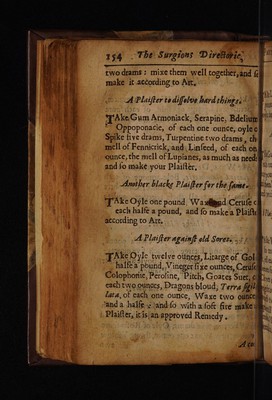 154 The Surgions Directorie,
two drams: mixe them well together, and
make it according to Art.
A Plaister to dissolve hard things.
TAke Gum Armoniack, Serapine, Bdelium
Oppoponacie, of each one ounce, oyle
Spike five drams, Turpentine two drams,
mell of Fennicrick, and Linseed, of each
ounce, the mell of Lupianes, as much as need
and so make your Plaister.
Another blacke Plaister for the same.
TAke Oyle one pound Wax and Ceruse
each halfe a pound, and so make a
according to Art.
A Plaister against old Sores.
TAke Oyle twelve ounces, Litarge of Gol
halfe a pound, Vineger sixe ounces,
Colophonie, Perosine, Pitch, Goates Suet,
each two ounces, Dragons bloud, Terra
lata, of each one ounce, Waxe two
and a halfe, and so with a soft fire make
Plaister, it is an approved Remedy.